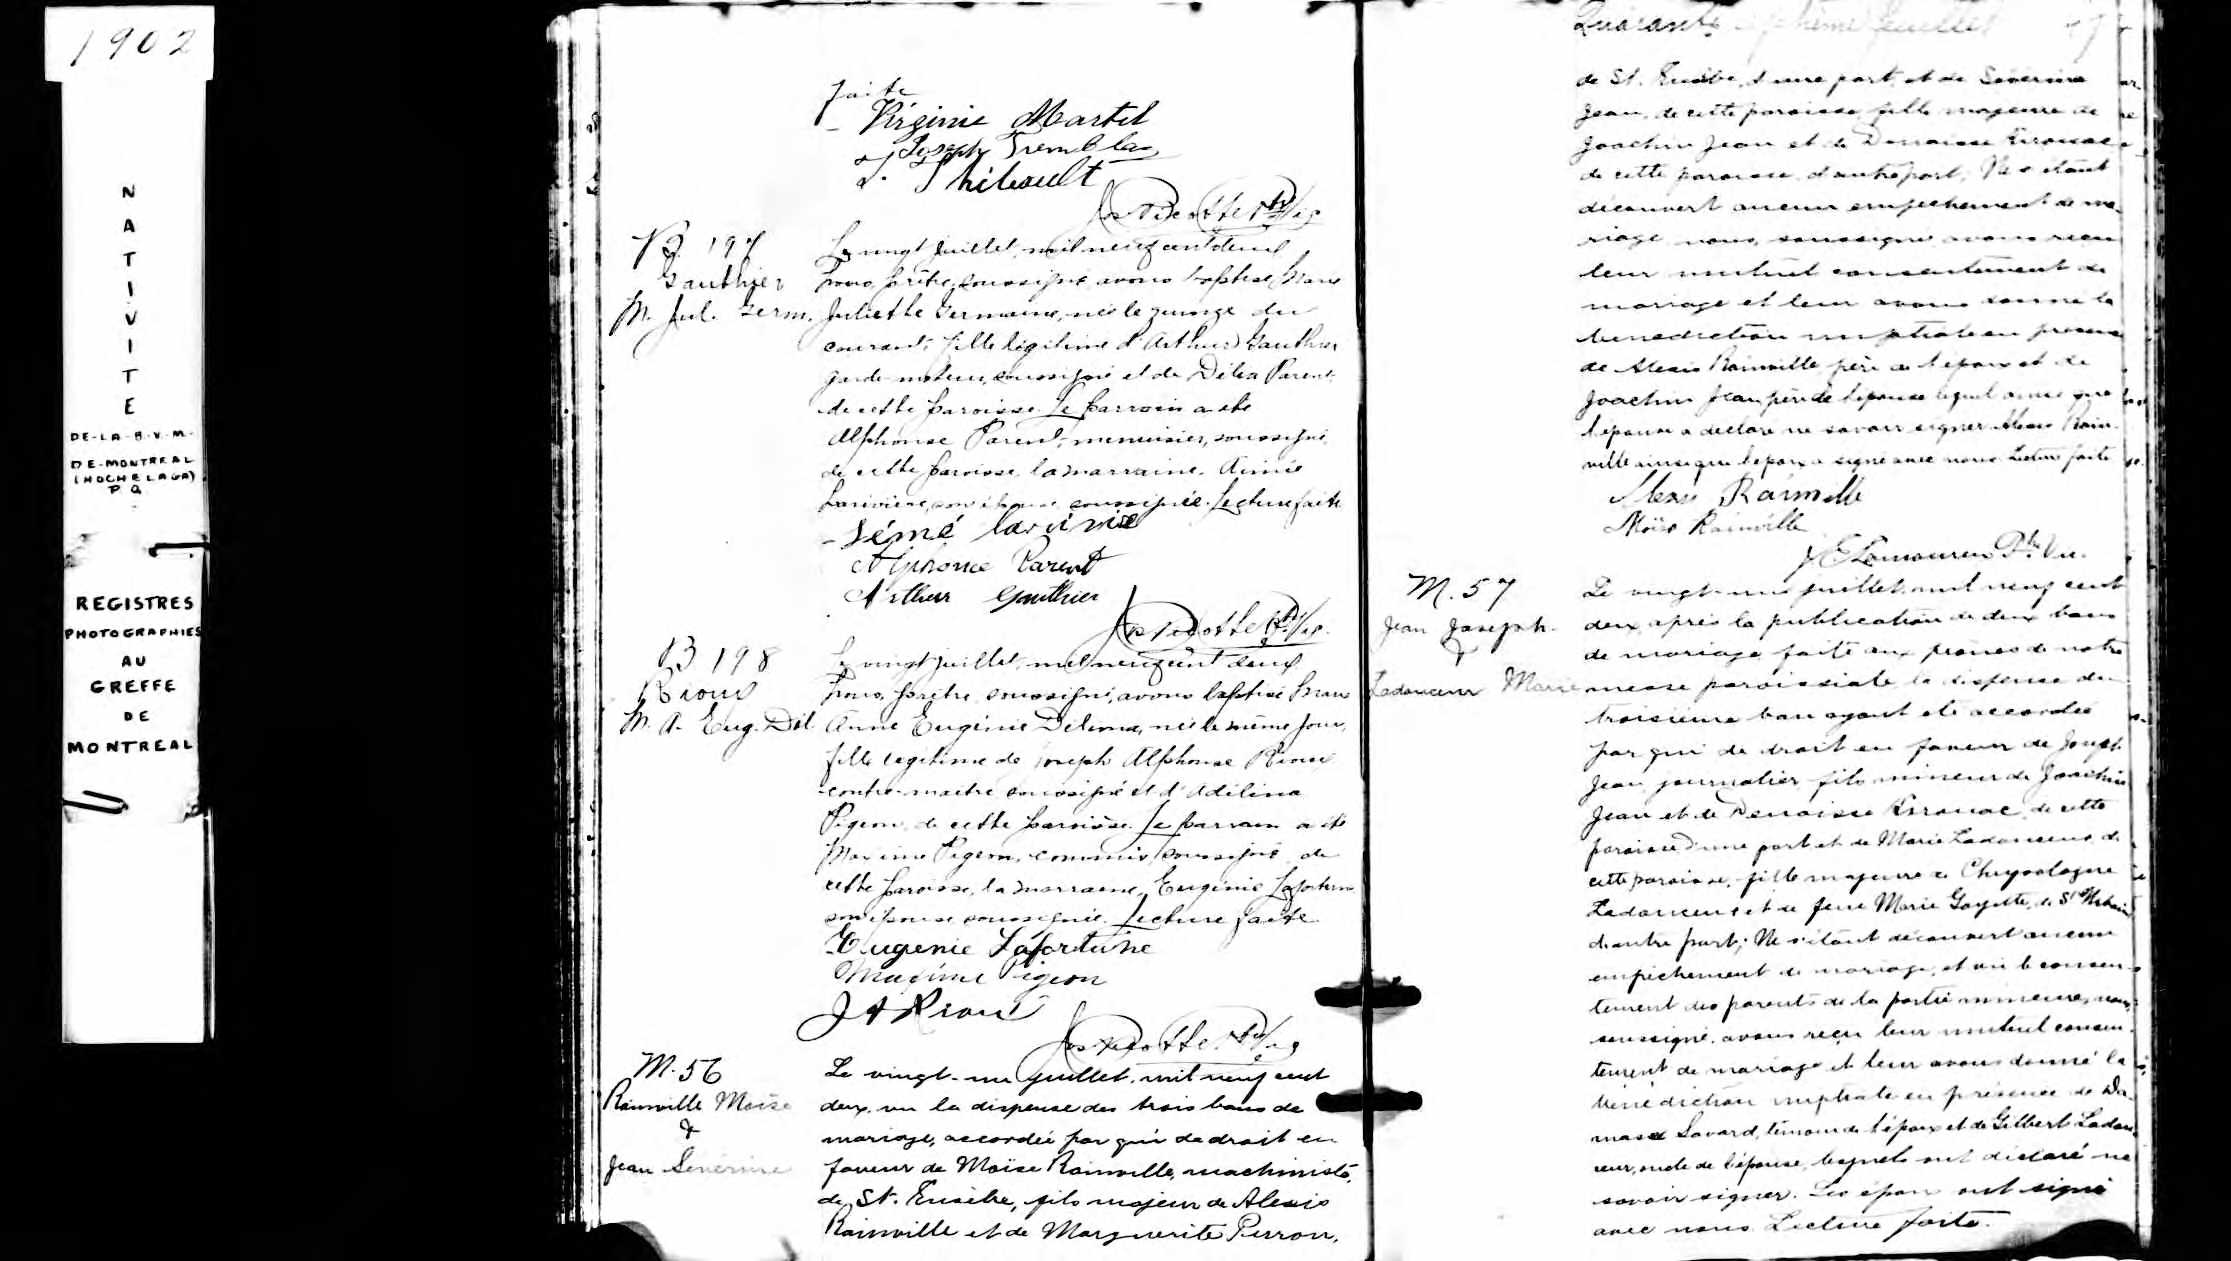 1902
NATIVITE
DE-LA-B-V-M-
DE-MONTREAL
(HOCHELAGA)
P Q
REGISTRES
PHOTOGRAPHIES
AU
GREFFE
DE
MONTREAL
faite
Virginie Martel
Joseph Tremblay
Thibault
B 197
Gauthier
M. Jul. Germ.
Le vingt juillet, mil neuf cent deux
nous, prêtre, soussigné avons baptisé Marie
Juliette Germaine, née le quinze du
courant, fille légitime d'Arthur Gauthier
garde-moteur, soussigné et de Délia Parent,
de cette paroisse. Le parrain a été
Alphonse Parent, menuisier, soussigné,
de cette paroisse, la marraine, Aimée
Larivière, son épouse, soussignée. Lecture faite
Alphonse Parent
Arthur Gauthier
B 198
Rioux
M. A. Eug. Dél.
Le vingt juillet, mil neuf cent deux,
nous, prêtre soussigné, avons baptisé Marie
Anne Eugénie Délima, née le même jour,
fille légitime de Joseph Alphonse Rioux
contre-maître soussigné et d'Adélina
Pigeon, de cette paroisse. Le parrain a été
Maxime Pigeon, commis, soussigné, de
cette paroisse, la marraine, Eugénie Lafortune
son épouse soussignée. Lecture faite
Eugenie Lafortune
Maxime Pigeon
J A Rioux
M. 56
Rainville Moïse
&
Jean Séverine
Le vingt-un juillet, mil neuf cent
deux, vu la dispense des trois bans de
mariage, accordée par qui de droit en
faveur de Moïse Rainville, machiniste,
de St. Eusèbe, fils majeur de Alexis
Rainville et de Marguerite Perron,
de St. Eusèbe, d'une part, et de Séverine
Jean, de cette paroisse fille majeure de
Joachim Jean et de Kirouac
de cette paroisse, d'autre part; Ne s'étant
découvert aucun empêchement de ma-
riage, nous, soussigné avons reçu
leur mutuel consentement de
mariage et leur avons donné la
bénédiction nuptiale en présence
de Alexis Rainville père de l'époux et de
Joachim Jean père de l'épouse lequel ainsi que
l'épouse a déclaré ne savoir signer Alexis Rain-
ville ainsi que l'époux a signé avec nous. Lecture faite
Alexis Rainville
Moïse Rainville
J E Lamoureux Ptre Vic.
M. 57
Jean Joseph
&
Ladouceur Marie
Le vingt-un juillet, mil neuf cent
deux, après la publication de deux bans
de mariage faite aux prônes de notre
messe paroissiale, la dispense du
troisième ban ayant été accordée
par qui de droit en faveur de Joseph
Jean journalier, fils mineur de Joachim
Jean et de Kirouac, de cette
paroisse d'une part et de Marie Ladouceur, de
cette paroisse, fille majeure de Chrysologue
Ladouceur et de feue Marie Goyette, de St Urbain
d'autre part; Ne s'étant découvert aucun
empêchement de mariage, et vu le consen-
tement des parents de la partie mineure, nous,
soussigné, avons reçu leur mutuel consen-
tement de mariage et leur avons donné la
bénédiction nuptiale en présence de Da-
mase Savard, témoin de l'époux et de Gilbert Ladou-
ceur, oncle de l'épouse, lesquels ont déclaré ne
savoir signer. Les époux ont signé
avec nous. Lecture faite.